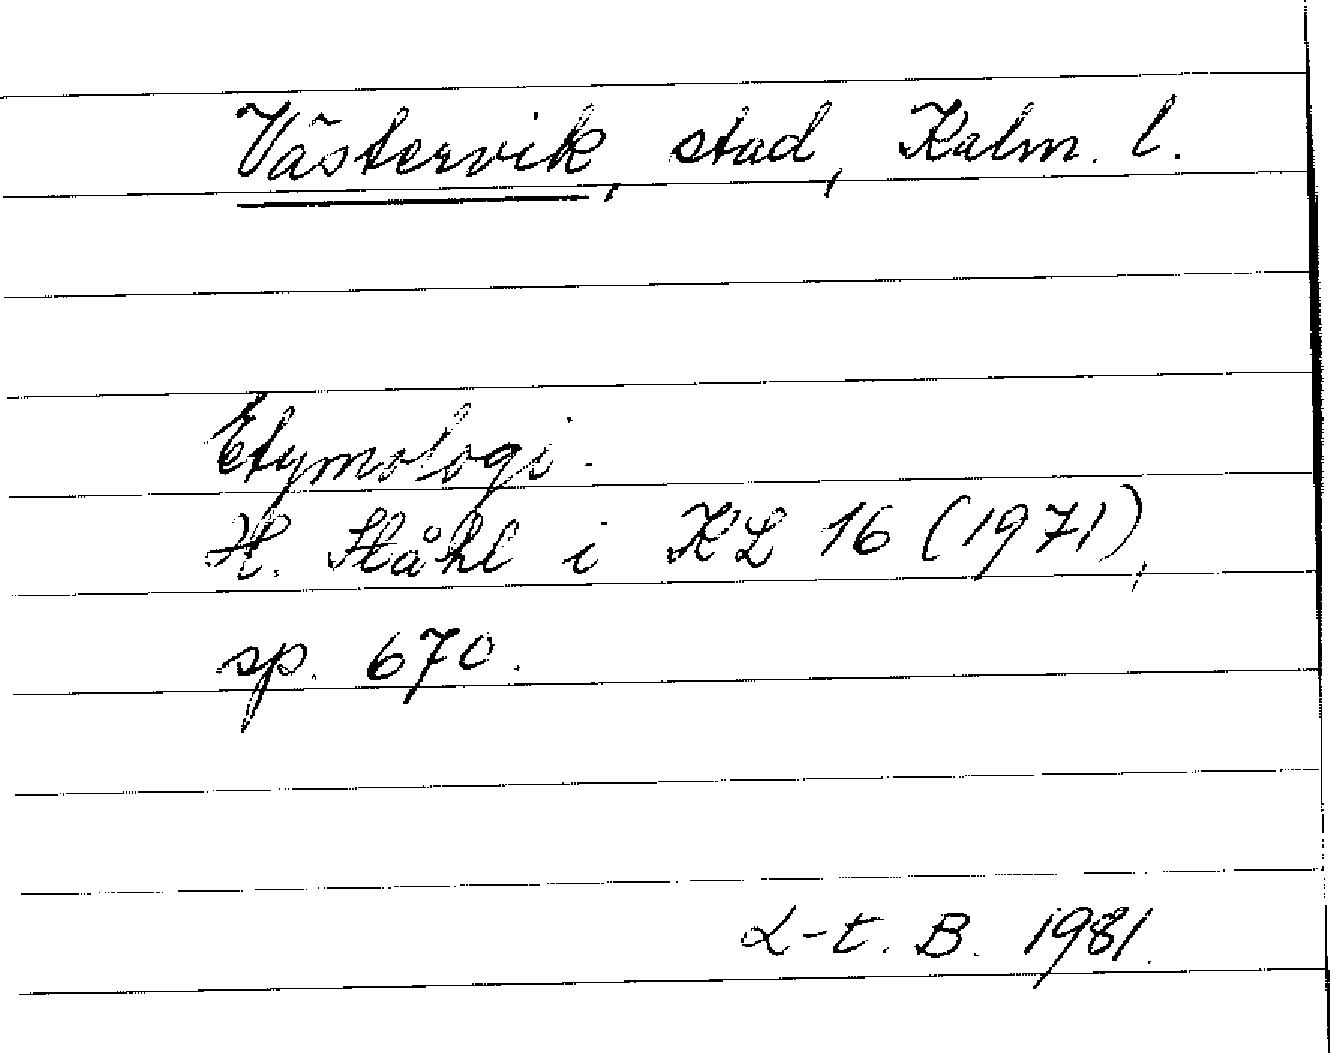 Västervik, stad, Kalm. l.
Etymologi.
H. Ståhl i KL 16 (1971),
sp. 670.
L-t. B. 1981.